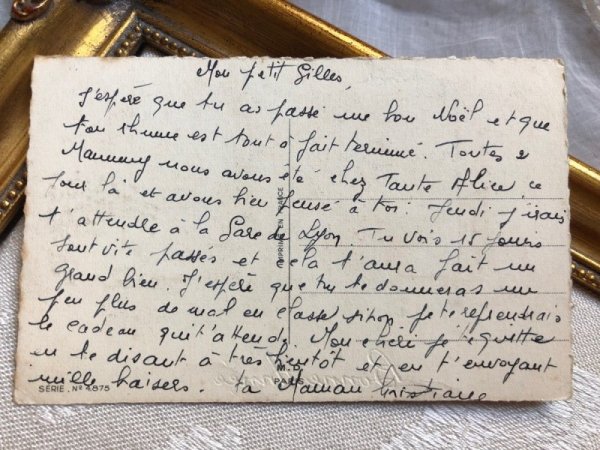 Mon petit Gilles,
J'espère que tu as passé un bon Noël et que
ton rhume est tout à fait terminé. Toutes 2
Mammy nous avons été chez Tante Alice ce
jour là et avons bien pensé à toi. Jeudi j'irais
t'attendre à la Gare de Lyon. Tu vois 15 jours
sont vite passés et cela t'aura fait un
grand bien. J'espère que tu te donneras un
peu plus de mal en classe sinon je te reprendrais
le cadeau qui t'attend. Mon chéri je te quitte
en te disant à très bientôt et en t'envoyant
mille baisers. Ta Maman Christiane
IMPRIMÉ EN FRANCE
M.D.
PARIS
SÉRIE. No 4875